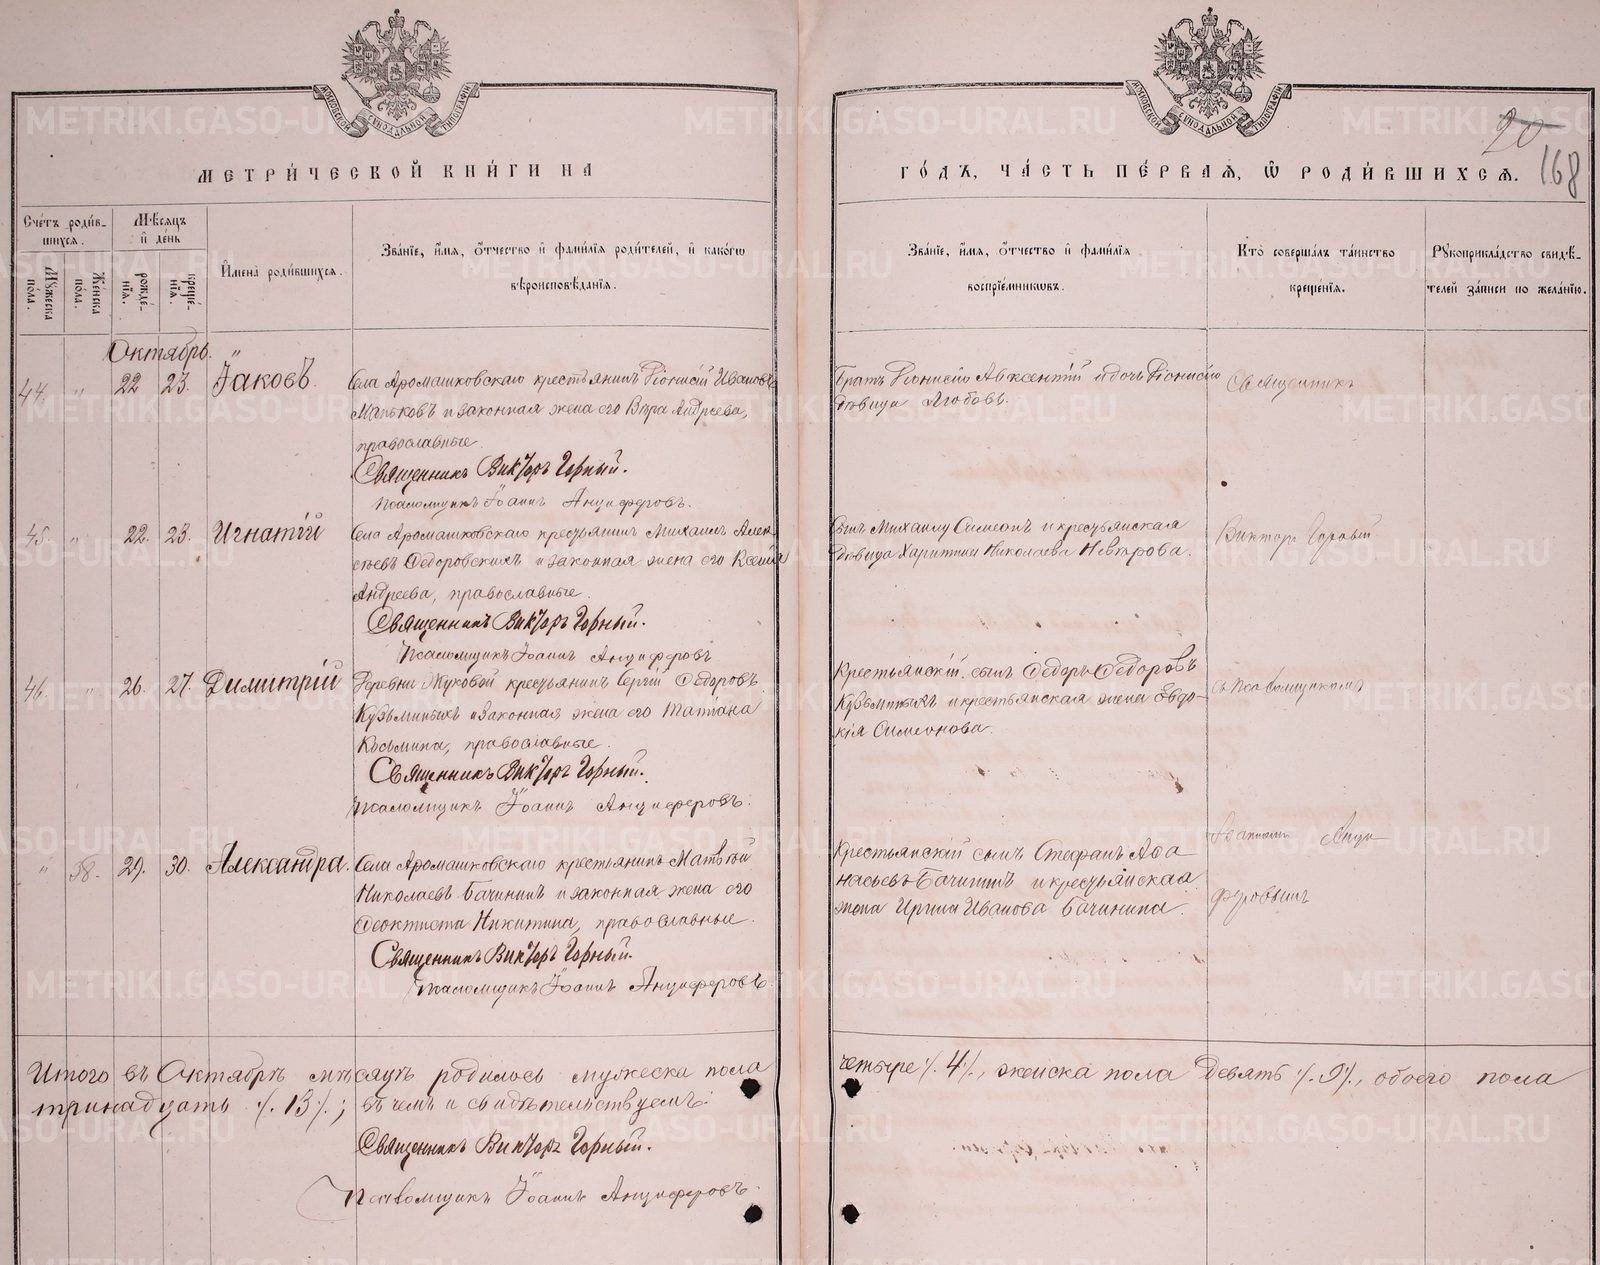 МЕТРИ́ЧЕСКОЙ КНИ́ГИ НА
ГО́ДЪ, ЧА́СТЬ ПЕ́РВАѦ, Ѡ҆ РОДИ́ВШИХСѦ.
20
168
Сче́тъ роди́в-
шихсѧ.
Мѣ́сѧцъ
и҆ де́нь
Мꙋ́жеска
по́ла.
Же́нска
по́ла.
рожде́-
нїѧ.
креще́-
нїѧ.
И҆мена̀ роди́вшихсѧ.
Зва́нїе, и҆́мѧ, ѻ҆́тчество и҆ фами́лїѧ роди́телей, и҆ како́гѡ
вѣроисповѣ́данїѧ.
Зва́нїе, и҆́мѧ, ѻ҆́тчество и҆ фами́лїѧ
воспрїе́мниковъ.
Кто̀ соверша́лъ та́инство
креще́нїѧ.
Рꙋкоприкла́дство свидѣ́-
телей за́писи по жела́нїю.
Октябрь.
44. " 22 23. Іаковъ.
Села Аромашковскаго крестьянинъ Діонисій Ивановъ
Маньковъ и законная жена его Вѣра Андреева,
православные.
Священникъ Викторъ Горный.
Псаломщикъ Іоаннъ Анциферовъ.
Братъ Діонисію Авксентій и дочь Діонисію
дѣвица Любовь.
Священникъ
45. " 22. 23. Игнатій
Села Аромашковскаго крестьянинъ Михаилъ Алек-
сѣевъ Ѳедоровскихъ и законная жена его Ксенія
Андреева, православные.
Священникъ Викторъ Горный.
Псаломщикъ Іоаннъ Анциферовъ
Сынъ Михаилу Симеонъ и крестьянская
дѣвица Харитина Николаева
Викторъ Горный
46. " 26. 27. Димитрій
Деревни Жуковой крестьянинъ Сергій Ѳедоровъ
Кузьминыхъ и законная жена его Татіана
Косьмина, православные.
Священникъ Викторъ Горный.
Псаломщикъ Іоаннъ Анциферовъ.
Крестьянскій сынъ Ѳедоръ Ѳедоровъ
Кузьминыхъ и крестьянская жена Евдо-
кія Симеонова.
съ псаломщикомъ
" 58. 29. 30. Александра.
Села Аромашковскаго крестьянинъ Матвѣй
Николаевъ Бачининъ и законная жена его
Ѳеоктиста Никитина, православные.
Священникъ Викторъ Горный.
Псаломщикъ Іоаннъ Анциферовъ.
Крестьянскій сынъ Стефанъ Аѳа
насьевъ Бачининъ и крестьянская
жена Ирина Иванова Бачинина.
Іоанномъ Анци-
феровымъ
Итого въ Октябрѣ мѣсяцѣ родилось мужеска пола
четыре /. 4 /., женска пола девять /. 9 /., обоего пола
тринадцать /. 13 /.; въ чемъ и свидѣтельствуемъ:
Священникъ Викторъ Горный.
Псаломщикъ Іоаннъ Анциферовъ.
METRIKI.GASO-URAL.RU